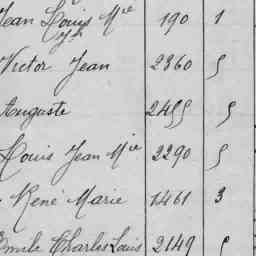 Jean Louis Mie 190 1
Victor Jean 2360 5
Auguste 2455 5
Louis Jean Mie 2290 5
René Marie 1461 3
Emile Charles Louis 2149 5